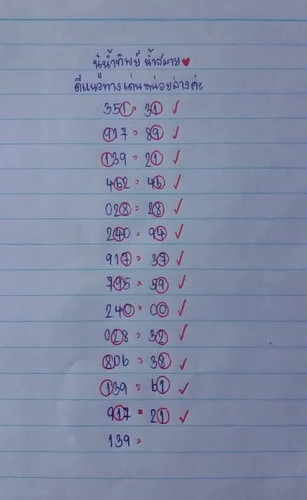 นู๋น้ำทิพย์ น้ำสบาย❤
ดูแนวทางเด่นหน่อยล่างค่ะ
351 = 31 ✓
917 = 89 ✓
139 = 21 ✓
462 = 46 ✓
028 = 28 ✓
240 = 94 ✓
917 = 37 ✓
795 = 59 ✓
240 = 00 ✓
028 = 32 ✓
806 = 38 ✓
139 = 61 ✓
917 = 21 ✓
139 =